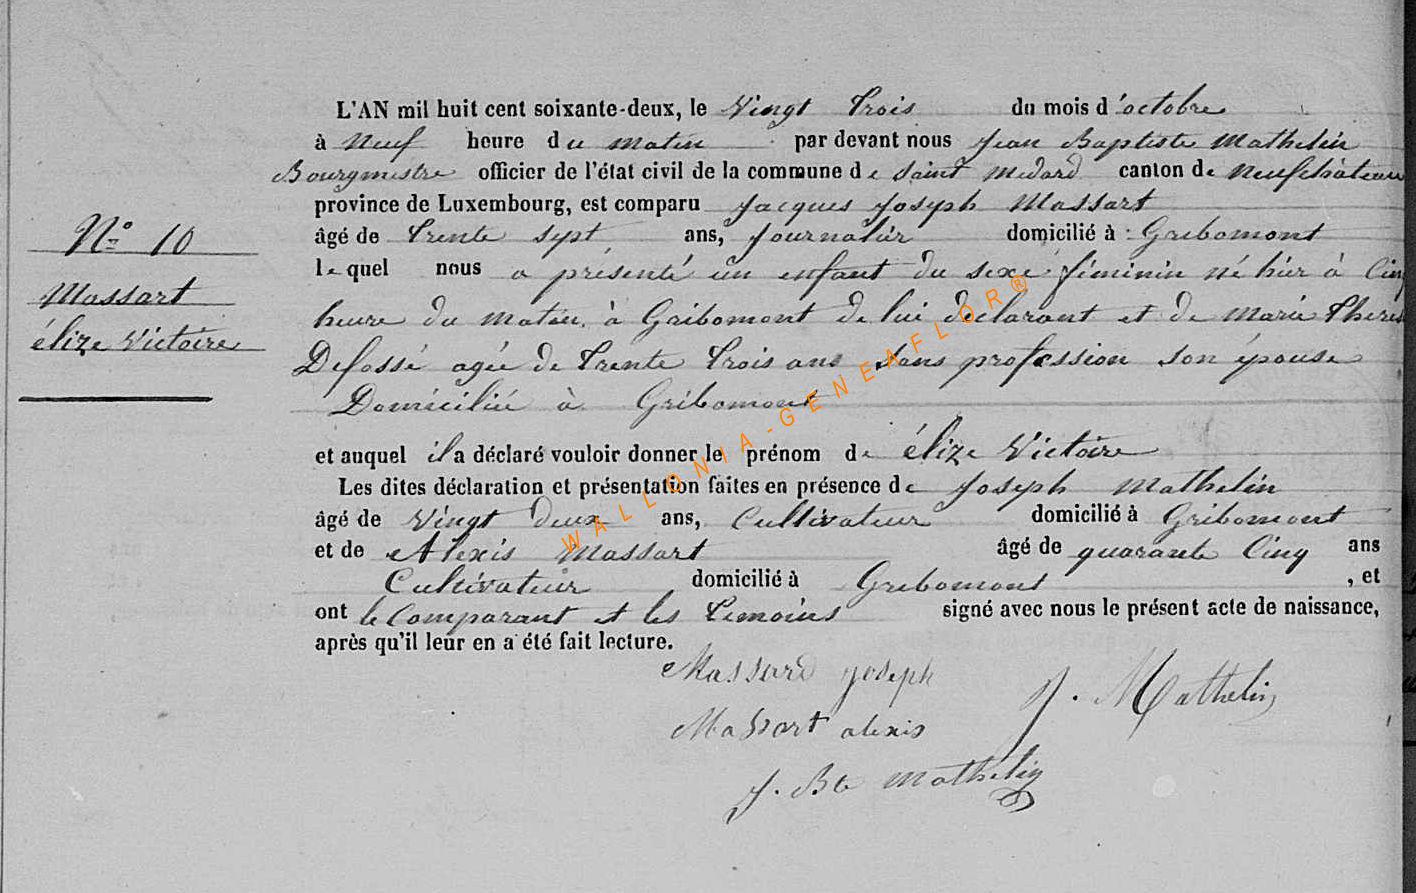 L'AN mil huit cent soixante-deux, le Vingt Trois du mois d'octobre
à Neuf heure du matin par devant nous Jean Baptiste Mathelin
Bourgmestre officier de l'état civil de la commune de Saint Medard canton de Neufchâteau
province de Luxembourg, est comparu Jacques Joseph Massart
âgé de Trente sept ans, Journalier domicilié à Gribomont
lequel nous a présenté un enfant du sexe féminin né hier à Cinq
heure du matin, à Gribomont de lui déclarant et de Marie Therese
Defossé agée de Trente Trois ans sans profession son épouse
Domiciliée à Gribomont
et auquel il a déclaré vouloir donner le prénom de élize Victoire
Les dites déclaration et présentation faites en présence de Joseph Mathelin
âgé de Vingt deux ans, Cultivateur domicilié à Gribomont
et de Alexis Massart âgé de quarante Cinq ans
Cultivateur domicilié à Gribomont, et
ont le Comparant et les Temoins signé avec nous le présent acte de naissance,
après qu'il leur en a été fait lecture.
N° 10
Massart
élize Victoire
Massard joseph
J. Mathelin
Massart alexis
J. Bte Mathelin
WALLONIA-GENEAFLOR®